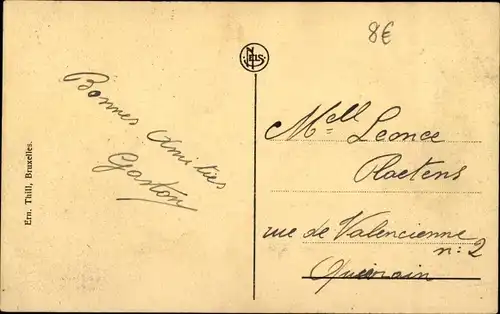 8€
NELS
Bonnes Amitiés
Gaston
Ern. Thill, Bruxelles.
Mell Leonce
Raetens
rue de Valencienne
n: 2
Quievrain